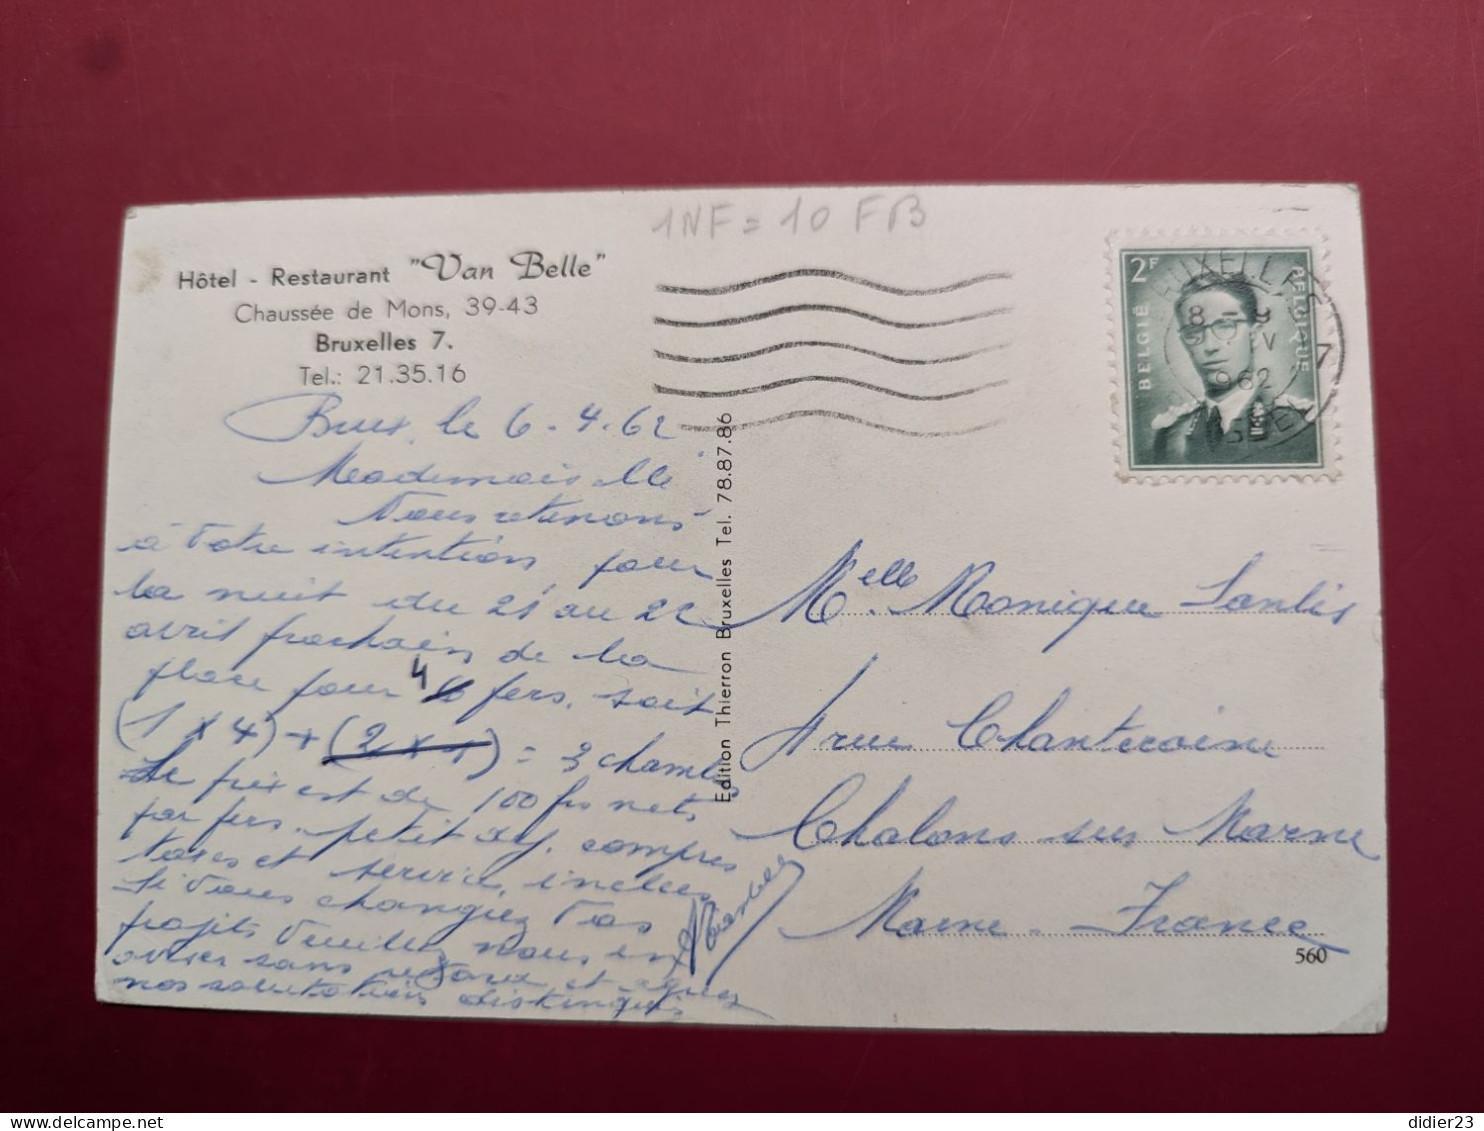 1NF = 10 FB
Hôtel - Restaurant "Van Belle"
Chaussée de Mons, 39-43
Bruxelles 7.
Tel.: 21.35.16
Brux, le 6-4-62
Mademoiselle
Nous retenons
à votre intention pour
la nuit du 21 au 22
avril prochain de la
place pour 4 pers. soit
(1 x 4) + (2 x 1) = 3 chambres
Le prix est de 100 frs nets
par pers. petit déj. compris
taxes et service, inclus
Si vous changiez vos
projets, veuillez nous en
aviser sans retard et agréez
nos salutations distinguées
Edition Thierron Bruxelles Tel. 78.87.86
2F
BELGIË
BELGIQUE
BRUXELLES 7
8 - 9
1962
BRUSSEL
Melle. Monique Senlis
4 rue Chantereine
Chalons sur Marne
Marne - France
560
didier23